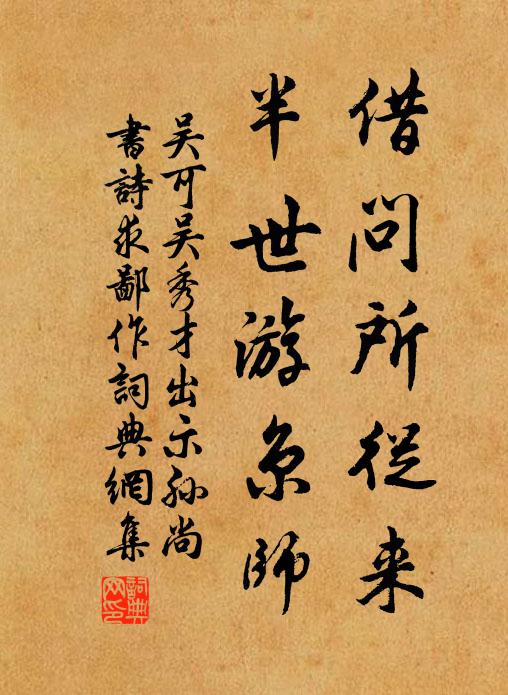 借問所從来
半世游京師
吴可吴秀才出示孙尚
書詩求鄙作詞典網集
詞典網印